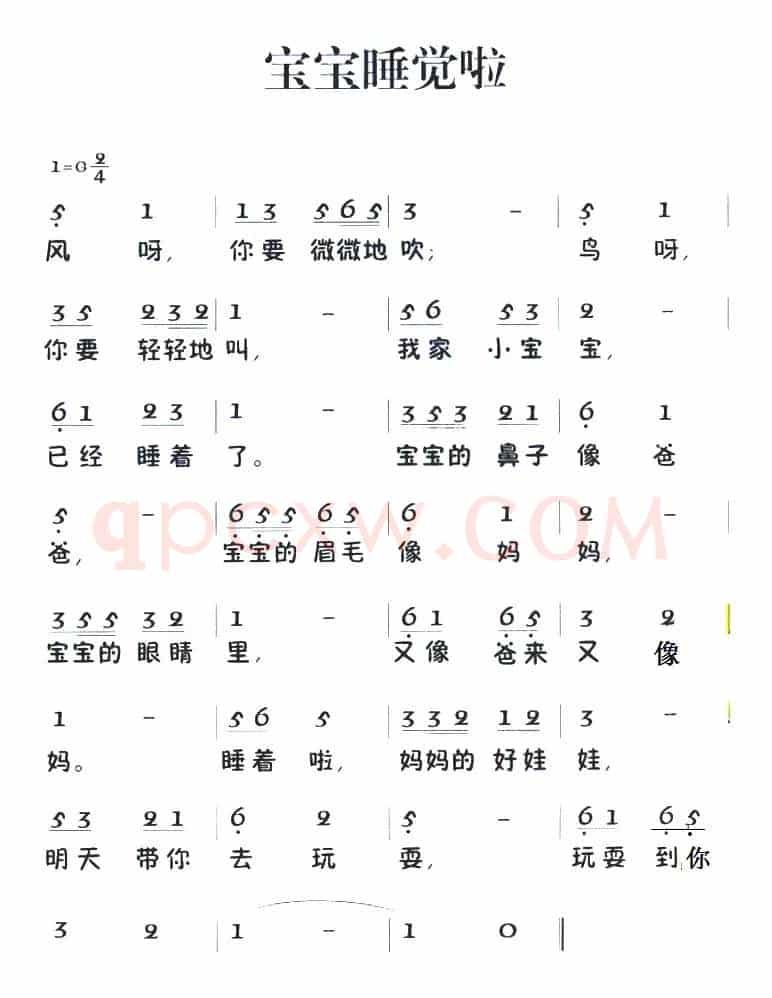 宝宝睡觉啦
1=G 2/4
5 1 | 1 3 5 6 5 | 3 - | 5 1 |
风 呀, 你 要 微微地 吹; 鸟 呀,
3 5 2 3 2 | 1 - | 5 6 5 3 | 2 - |
你 要 轻轻地 叫, 我 家 小 宝 宝,
6 1 2 3 | 1 - | 3 5 3 2 1 | 6 1
已 经 睡 着 了。 宝宝的 鼻子 像 爸
5 - | 6 5 5 6 5 | 6 1 | 2 - |
爸, 宝宝的 眉毛 像 妈 妈,
3 5 5 3 2 | 1 - | 6 1 6 5 | 3 2 |
宝宝的 眼睛 里, 又像 爸来 又 像
1 - | 5 6 5 | 3 3 2 1 2 | 3 - |
妈。 睡着 啦, 妈妈的 好娃 娃,
5 3 2 1 | 6 2 | 5 - | 6 1 6 5
明天 带你 去 玩 耍, 玩耍 到你
3 2 | 1 - | 1 0 ‖
qpcxw.COM